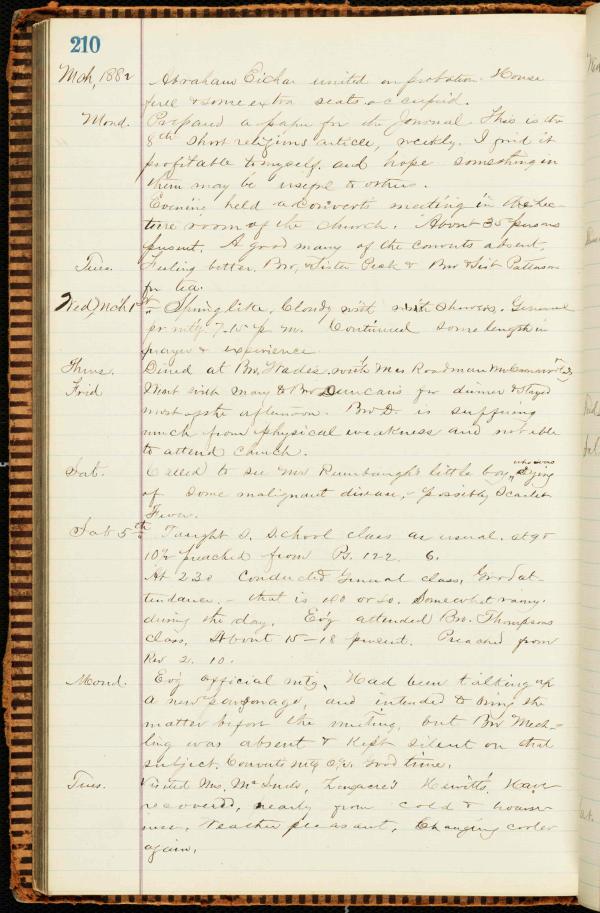 210
Mch, 1882 Abraham Eicher united on probation. House
full & some extra seats occupied.
Mond. Prepared a paper for the Journal This is the
8th short religious article, weekly. I find it
profitable to myself and hope something in
them may be useful to others.
Evening held a converts meeting in the lec-
ture room of the church. About 35 persons
present. A good many of the converts absent.
Tues. Feeling better. Bro, & Sister Peak & Bro & Sist Patterson
for tea.
Wed, Mch 1st Spring like, Cloudy with showers. General
pr. mt'g 7-15 p m. Continued some length in
prayer & experience
Thurs. Dined at Bro. Wades with Mrs Roadman
Frid Went with Mary to Bro Duncan's for dinner & stayed
most of the afternoon. Bro D. is suffering
much from physical weakness and not able
to attend church.
Sat. Called to see Mr Rumbaugh's little boy, who was dying
of some malignant disease, - possibly Scarlet
Fever.
Sab 5th Taught S. School class as usual. At
10½ preached from Ps. 122. 6.
At 2 30 Conducted General class, Good at-
tendance. - that is 40 or so. Somewhat rainy
during the day. Ev'g attended Bro. Thompsons
class, About 15-18 present. Preached from
Rev 2. 10.
Mond. Ev'g official mt'g. Had been talking up
a new parsonage, and intended to bring the
matter before the meeting, but Bro Mech-
ling was absent & kept silent on that
subject. Converts mt'g Ev. Good time.
Tues. Visited Mrs. Longacre's Hewitt's. Have
recovered, nearly from cold & hoarse-
ness, Weather pleasant, Changing cooler
again.